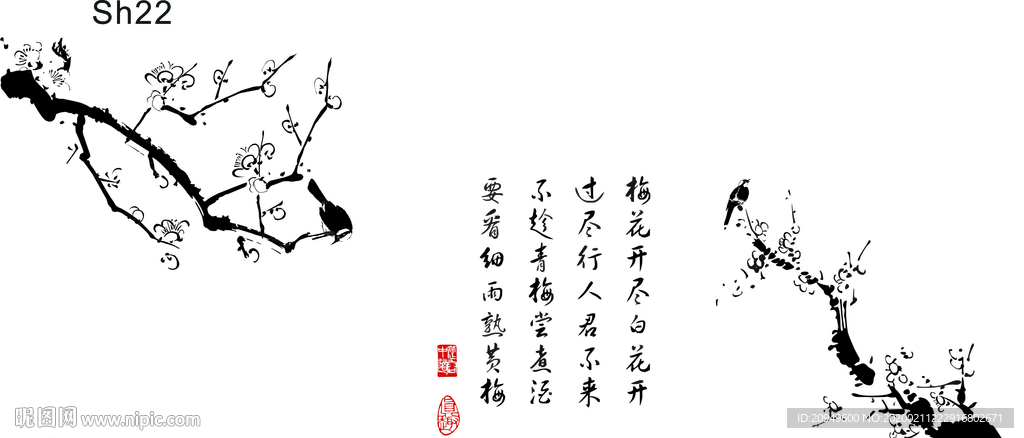 Sh22
梅花开尽白花开
过尽行人君不来
不趁青梅尝煮酒
要看细雨熟黄梅
昵图网 www.nipic.com
ID:20949600 NO:20200211222916802671